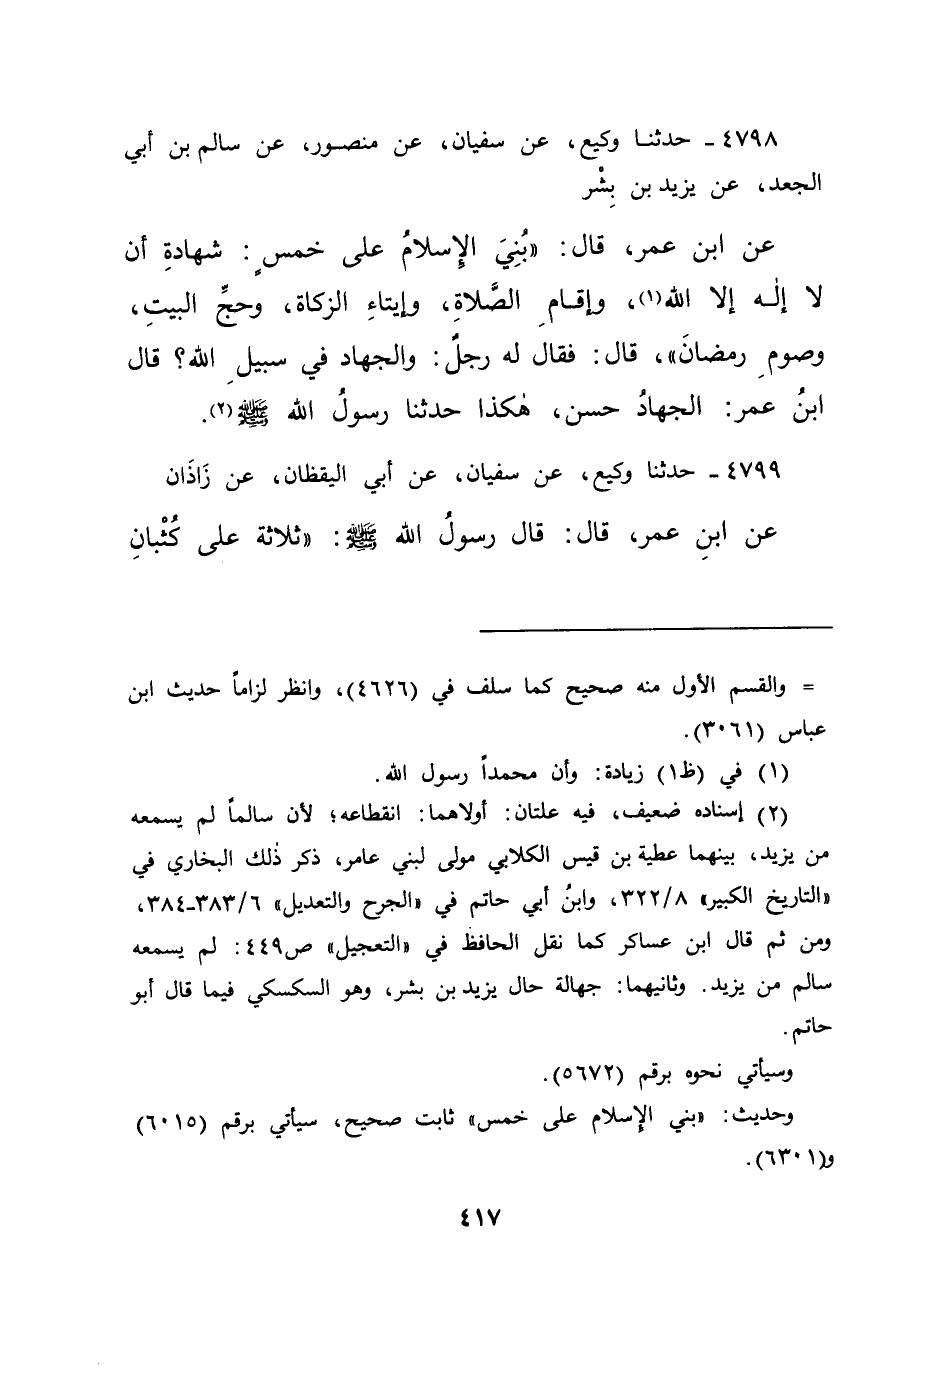 ٤٧٩٨ ـ حدثنا وكيع، عن سفيان، عن منصور، عن سالم بن أبي
الجعد، عن يزيد بن بِشْر
عن ابن عمر، قال: «بُنِيَ الإِسلامُ على خمسٍ: شهادةِ أن
لا إلٰه إلا الله(١)، وإقامِ الصَّلاةِ، وإيتاءِ الزكاة، وحجِّ البيتِ،
وصومِ رمضانَ»، قال: فقال له رجلٌ: والجهاد في سبيلِ الله؟ قال
ابنُ عمر: الجهادُ حسن، هٰكذا حدثنا رسولُ الله ﷺ(٢).
٤٧٩٩ ـ حدثنا وكيع، عن سفيان، عن أبي اليقظان، عن زَاذَان
عن ابنِ عمر، قال: قال رسولُ الله ﷺ: «ثلاثة على كُثْبانِ
= والقسم الأول منه صحيح كما سلف في (٤٦٢٦)، وانظر لزاماً حديث ابن
عباس (٣٠٦١).
(١) في (ظ١) زيادة: وأن محمداً رسول الله.
(٢) إسناده ضعيف، فيه علتان: أولاهما: انقطاعه؛ لأن سالماً لم يسمعه
من يزيد، بينهما عطية بن قيس الكلابي مولى لبني عامر، ذكر ذٰلك البخاري في
«التاريخ الكبير» ٣٢٢/٨، وابنُ أبي حاتم في «الجرح والتعديل» ٣٨٣/٦ـ٣٨٤،
ومن ثم قال ابن عساكر كما نقل الحافظ في «التعجيل» ص٤٤٩: لم يسمعه
سالم من يزيد. وثانيهما: جهالة حال يزيد بن بشر، وهو السكسكي فيما قال أبو
حاتم.
وسيأتي نحوه برقم (٥٦٧٢).
وحديث: «بني الإِسلام على خمس» ثابت صحيح، سيأتي برقم (٦٠١٥)
و(٦٣٠١).
٤١٧